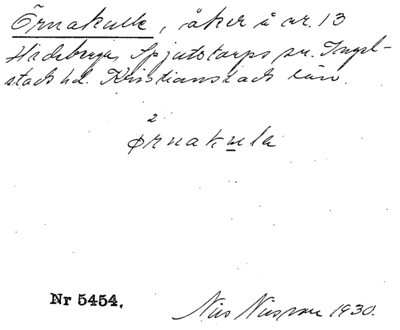 Örnakulle, åker å nr. 13
Hedeberga, Spjutstorps sn. Ingel-
stads hd. Kristianstads län.
2
ørnakula
Nr 5454.
Nils Nilsson 1930.